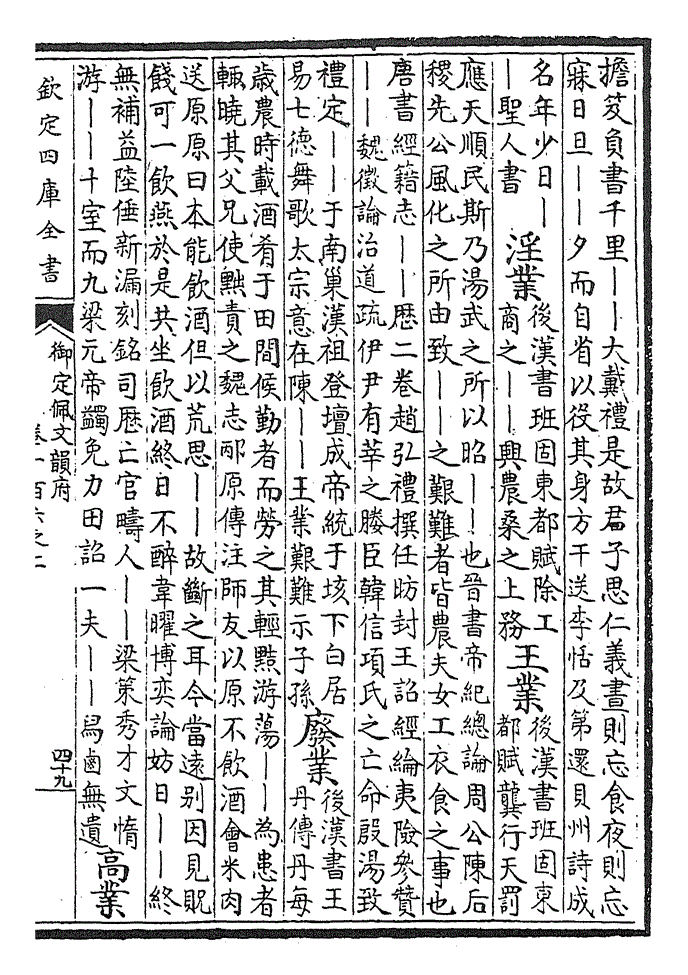 擔笈負書千里——大戴禮是故君子思仁義晝則忘食夜則忘
寐日旦——夕而自省以役其身方干送李恬及第還貝州詩成
名年少日—
—聖人書
淫業
後漢書班固東都賦除工
商之——興農桑之上務
王業
後漢書班固東
都賦龔行天罰
應天順民斯乃湯武之所以昭——也晉書帝紀總論周公陳后
稷先公風化之所由致——之艱難者皆農夫女工衣食之事也
唐書經籍志——歷二卷趙弘禮撰任昉封王詔經綸夷險參贊
——魏徵論治道疏伊尹有莘之媵臣韓信項氏之亡命殷湯致
禮定——于南巢漢祖登壇成帝統于垓下白居
易七德舞歌太宗意在陳——王業艱難示子孫
廢業
後漢書王
丹傳丹每
歲農時載酒肴于田間候勤者而勞之其輕黠游蕩——為患者
輒曉其父兄使黜責之魏志邴原傳注師友以原不飲酒會米肉
送原原曰本能飲酒但以荒思——故斷之耳今當遠别因見貺
餞可一飲燕於是共坐飲酒終日不醉韋曜博奕論妨日——終
無補益陸倕新漏刻銘司歷亡官疇人——梁策秀才文惰
游——十室而九梁元帝蠲免力田詔一夫——舄鹵無遺
高業
欽定四庫全書
御定佩文韻府
卷一百六之二
四十九